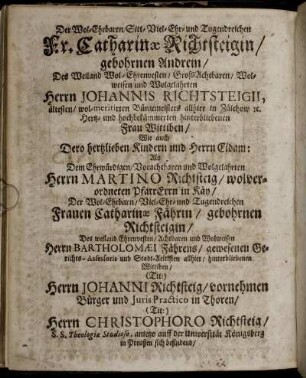 Der Wol-Ehrbaren/Sitt-/Viel-Ehr- und Tugendreichen
Fr. Catharinæ Richtsteigin/
gebohrnen Andrein/
Des Weiland Wol-Ehrenvesten/ Großachtbaren/ Wol-
weisen und Wolgelahrten
Herrn JOHANNIS RICHTSTEIGII,
ältesten/ wol-meritirten Bürgemeisters allhier in Zülchow ꝛc.
Hertz- und hochbekümmerten hinterbliebenen
Frau Wittiben/
Wie auch
Dero hertzlieben Kindern und Herrn Eidam:
Als
Dem Ehrwürdigen/ Vorachtbaren und Wolgelahrten
Herrn MARTINO Richtsteig/ wolver-
ordneten PfarrErrn in Käy/
Der Wol-Ehrbarn/ Viel-Ehr- und Tugendreichen
Frauen Catharinæ Fährin/ gebohrnen
Richtsteigin/
Des weiland Ehrenvesten/ Achtbaren und Wolweisen
Herrn BARTHOLOMÆI Fährens/ gewesenen Ge-
richts-Assessoris und Stadt-Eltisten allhier/ hinterbliebenen
Wittiben/
(Tit:)
Herrn JOHANNI Richtsteig/ vornehmen
Bürger und Juris Practico in Thoren/
(Tit:)
Herrn CHRISTOPHORO Richtsteig/
S. S. Theologiæ Studioso, anietzo auff der Universität Königsberg
in Preussen sich befindend/